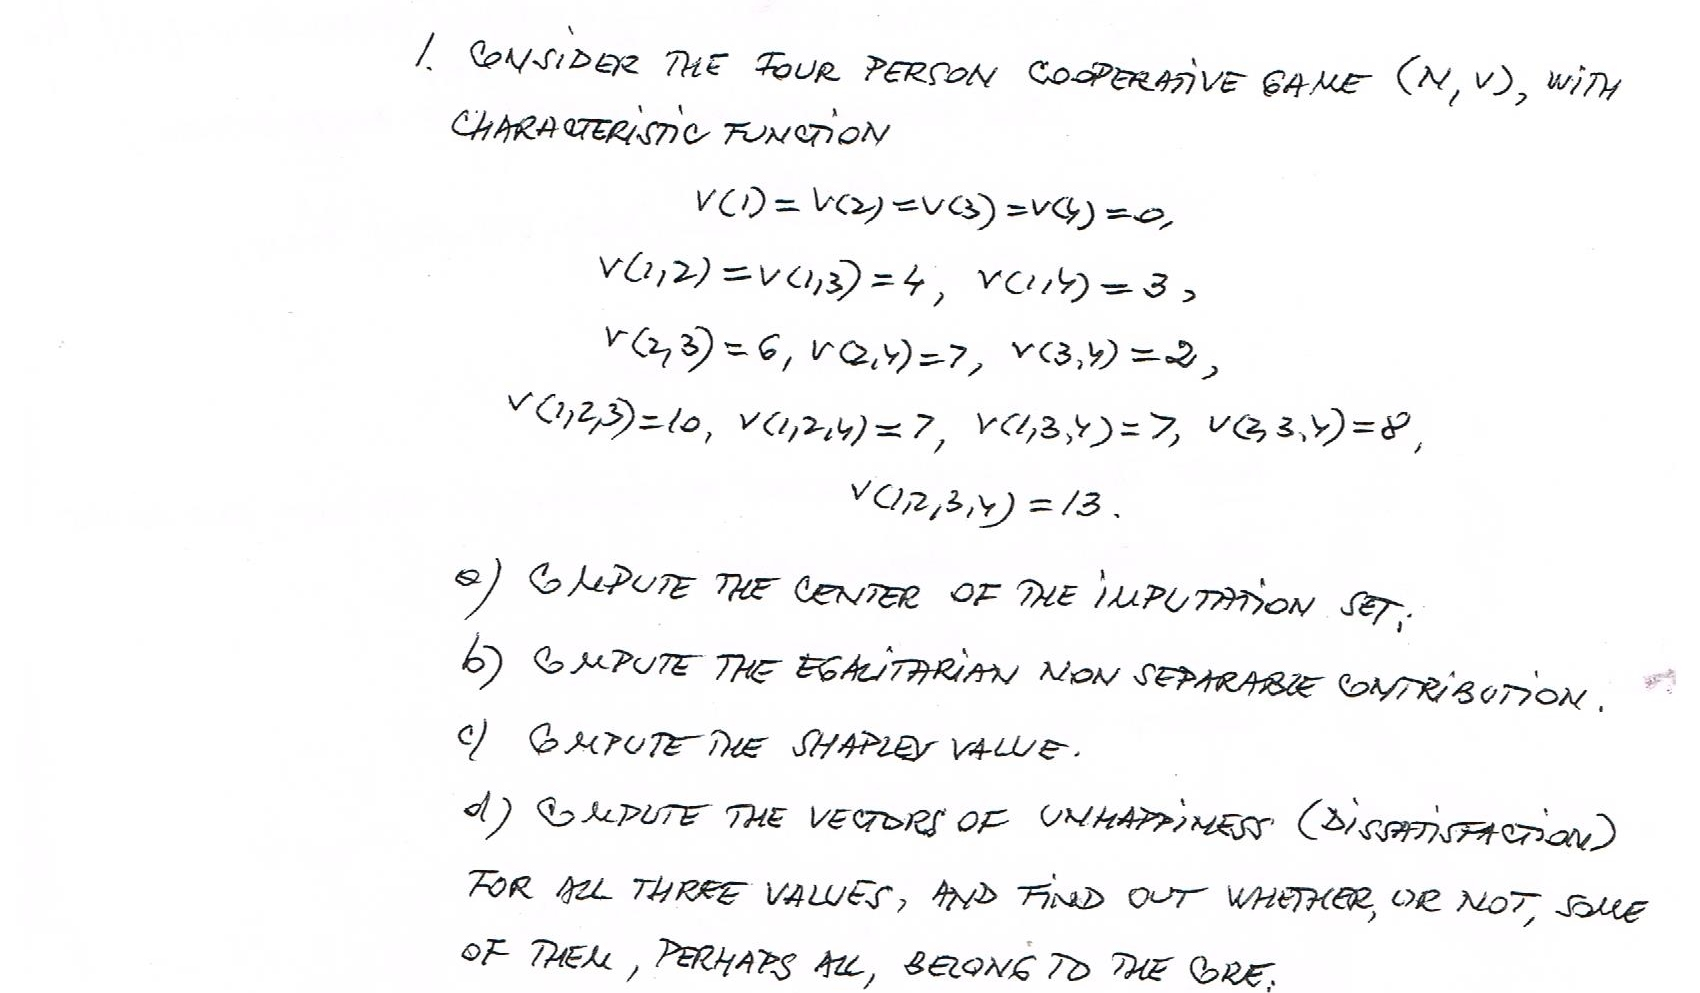 1. CONSIDER THE FOUR PERSON COOPERATIVE GAME (N, V), WITH
CHARACTERISTIC FUNCTION
V(1) = V(2) = V(3) = V(4) = 0,
V(1,2) = V(1,3) = 4, V(1,4) = 3,
V(2,3) = 6, V(2,4) = 7, V(3,4) = 2,
V(1,2,3) = 10, V(1,2,4) = 7, V(1,3,4) = 7, V(2,3,4) = 8,
V(1,2,3,4) = 13.
a) COMPUTE THE CENTER OF THE IMPUTATION SET;
b) COMPUTE THE EGALITARIAN NON SEPARABLE CONTRIBUTION.
c) COMPUTE THE SHAPLEY VALUE.
d) COMPUTE THE VECTORS OF UNHAPPINESS (DISSATISFACTION)
FOR ALL THREE VALUES, AND FIND OUT WHETHER, OR NOT, SOME
OF THEM, PERHAPS ALL, BELONG TO THE CORE.